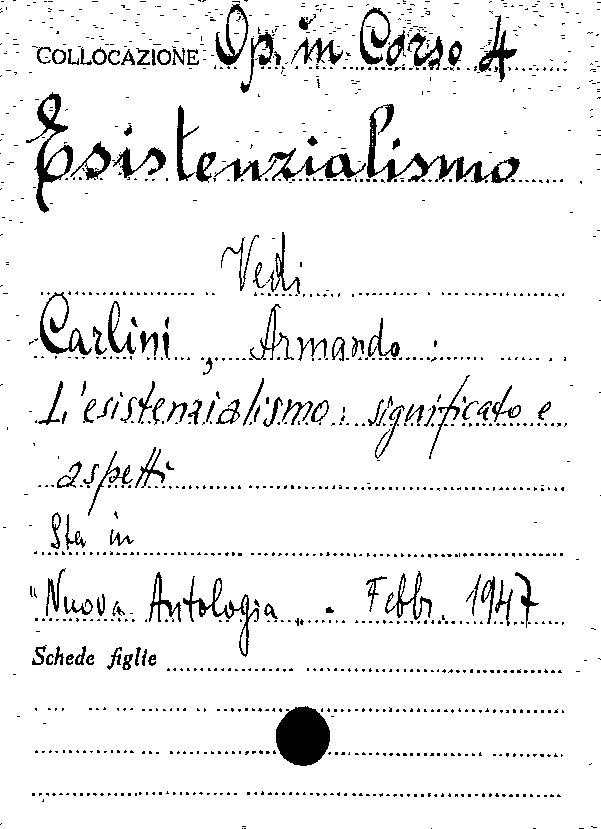 COLLOCAZIONE Op. in Corso 4
Esistenzialismo
Vedi
Carlini, Armando:
L'esistenzialismo: significato e
aspetti
Sta in
"Nuova Antologia„ - Febbr. 1947
Schede figlie